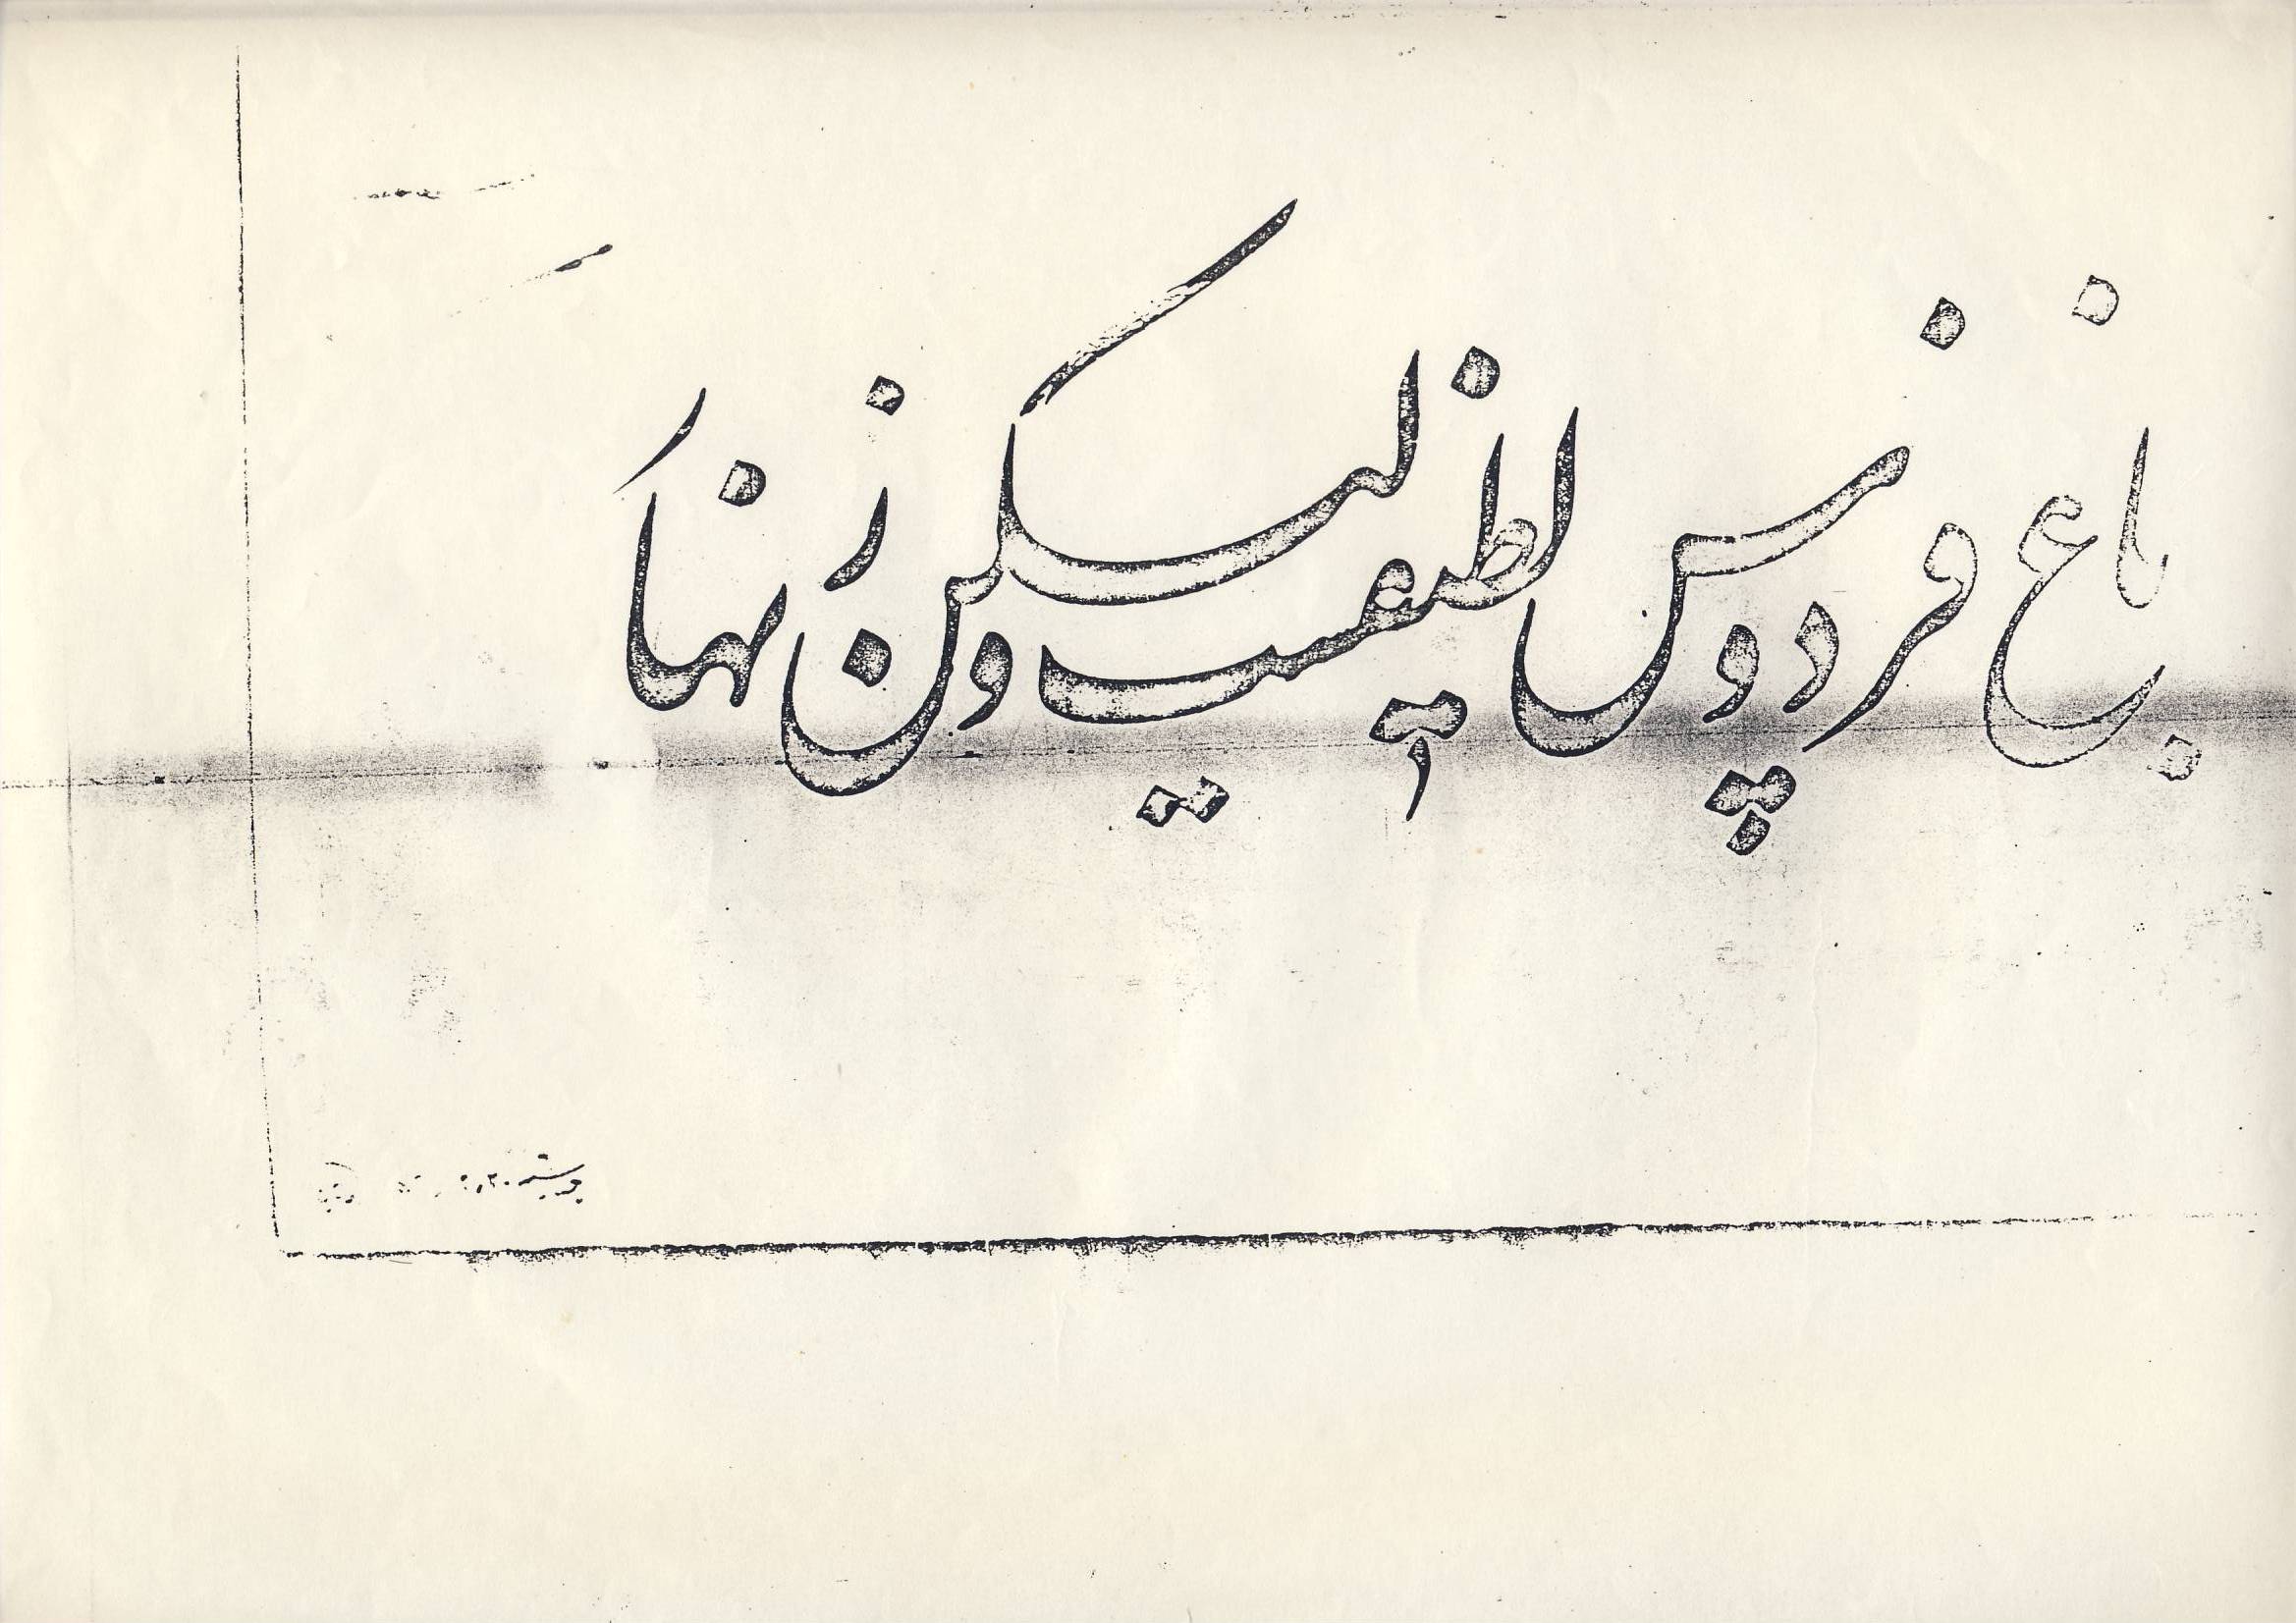 باغ فردوس لطیفست ولیکن زنهار